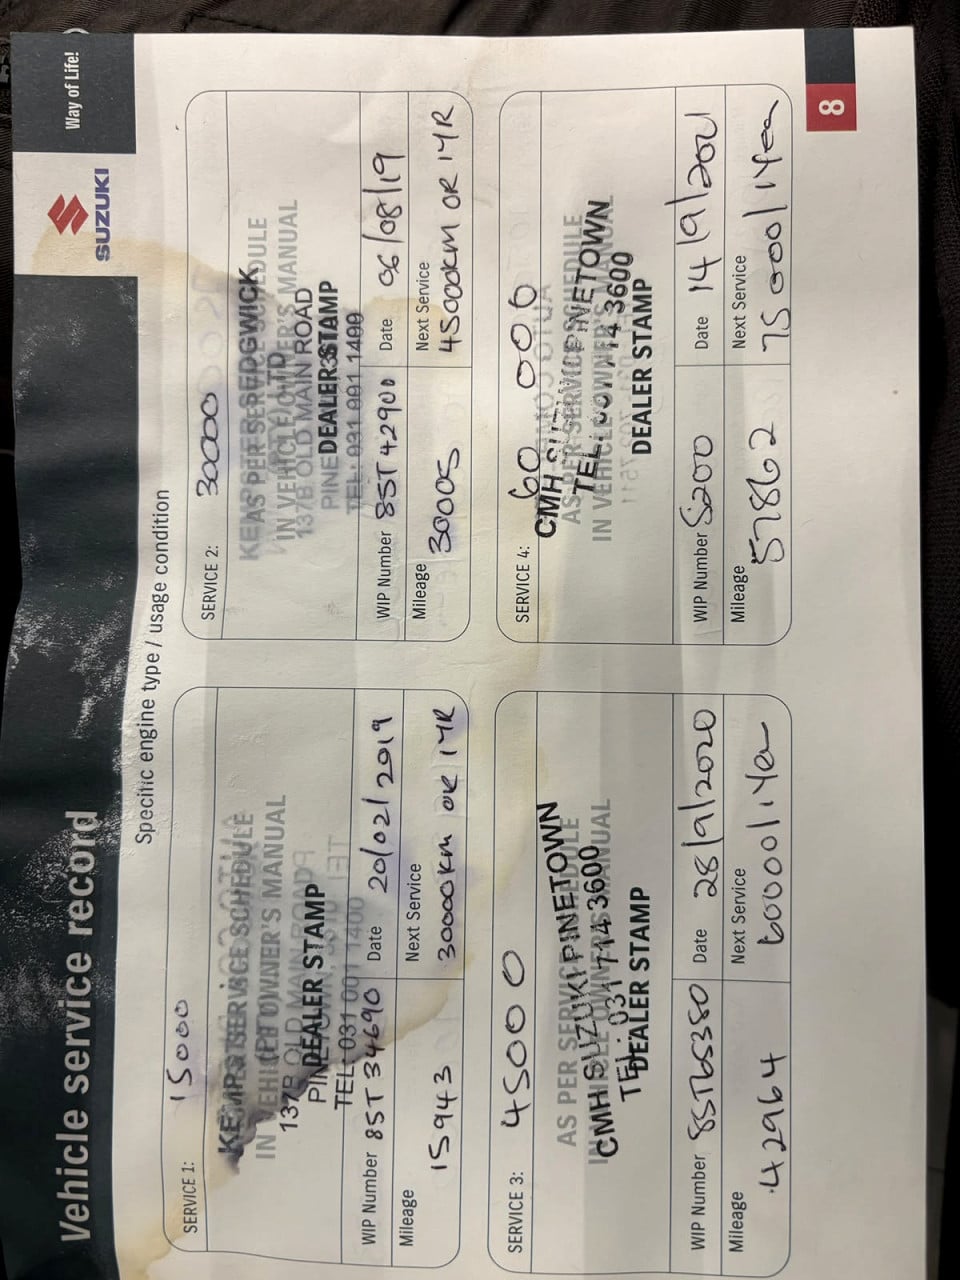 Vehicle service record
SUZUKI
Way of Life!
Specific engine type / usage condition
SERVICE 1: 15000
AS PER SERVICE SCHEDULE
IN VEHICLE OWNER'S MANUAL
137B OLD MAIN ROAD
DEALER STAMP
TEL: 031 001 1400
WIP Number 85T34690
Date 20/02/2019
Mileage 15943
Next Service 30000KM OR 1YR
SERVICE 2: 30000
AS PER SERVICE SCHEDULE
IN VEHICLE OWNER'S MANUAL
137B OLD MAIN ROAD
DEALER STAMP
TEL: 031 001 1400
WIP Number 85T42900
Date 06/08/19
Mileage 30005
Next Service 45000KM OR 1YR
SERVICE 3: 45000
AS PER SERVICE SCHEDULE
IN VEHICLE OWNER'S MANUAL
CMH SUZUKI PINETOWN
TEL: 031 714 3600
DEALER STAMP
WIP Number 85T65380
Date 28/9/2020
Mileage 42964
Next Service 60000/1Year
SERVICE 4: 60 000
CMH SUZUKI PINETOWN
AS PER SERVICE SCHEDULE
IN VEHICLE OWNER'S MANUAL
TEL: 031 714 3600
DEALER STAMP
WIP Number 5200
Date 14/9/2021
Mileage 57862
Next Service 75 000/1Year
8